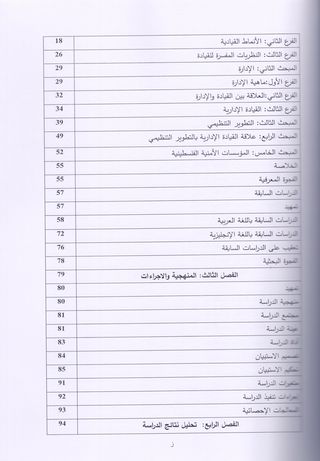 الفرع الثاني: الأنماط القيادية 18
الفرع الثالث: النظريات المفسرة للقيادة 26
المبحث الثاني: الإدارة 29
الفرع الأول: ماهية الإدارة 29
الفرع الثاني: العلاقة بين القيادة والإدارة 32
الفرع الثالث: القيادة الإدارية 34
المبحث الثالث: التطوير التنظيمي 39
المبحث الرابع: علاقة القيادة الإدارية بالتطوير التنظيمي 49
المبحث الخامس: المؤسسات الأمنية الفلسطينية 52
الخلاصة 55
الفجوة المعرفية 55
الدراسات السابقة 57
تمهيد 57
الدراسات السابقة باللغة العربية 58
الدراسات السابقة باللغة الإنجليزية 72
تعقيب على الدراسات السابقة 76
الفجوة البحثية 78
الفصل الثالث: المنهجية والاجراءات 79
تمهيد 80
منهجية الدراسة 80
مجتمع الدراسة 81
عينة الدراسة 81
أداة الدراسة 83
تصميم الاستبيان 84
تحكيم الاستبيان 85
متغيرات الدراسة 91
إجراءات تنفيذ الدراسة 92
المعالجات الإحصائية 93
الفصل الرابع: تحليل نتائج الدراسة 94
ز